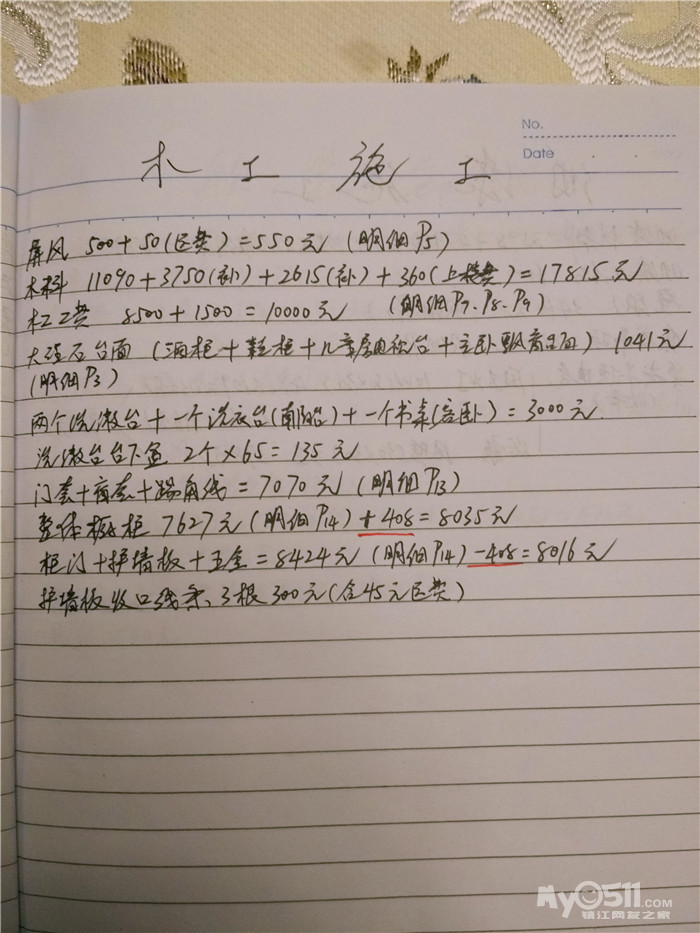 No.
Date
木工施工
屏风 500+50(运费)=550元 (明细P5)
木料 11090+3750(补)+2615(补)+360(上楼费)=17815元
木工工费 8500+1500=10000元 (明细P7.P8.P9)
大理石台面 (酒柜+鞋柜+儿童房电脑台+主卧飘窗台面) 1041元
(明细P3)
两个洗漱台+一个洗衣台(南阳台)+一个书桌(客卧)=3000元.
洗漱台台下盆 2个×65=135元
门套+窗套+踢角线=7070元(明细P13)
整体板柜 7627元(明细P14)+408=8035元
柜门+护墙板+五金=8424元(明细P14)-408=8016元
护墙板收口线条、3根300元(含45元运费)
MyO511.COM
镇江网友之家